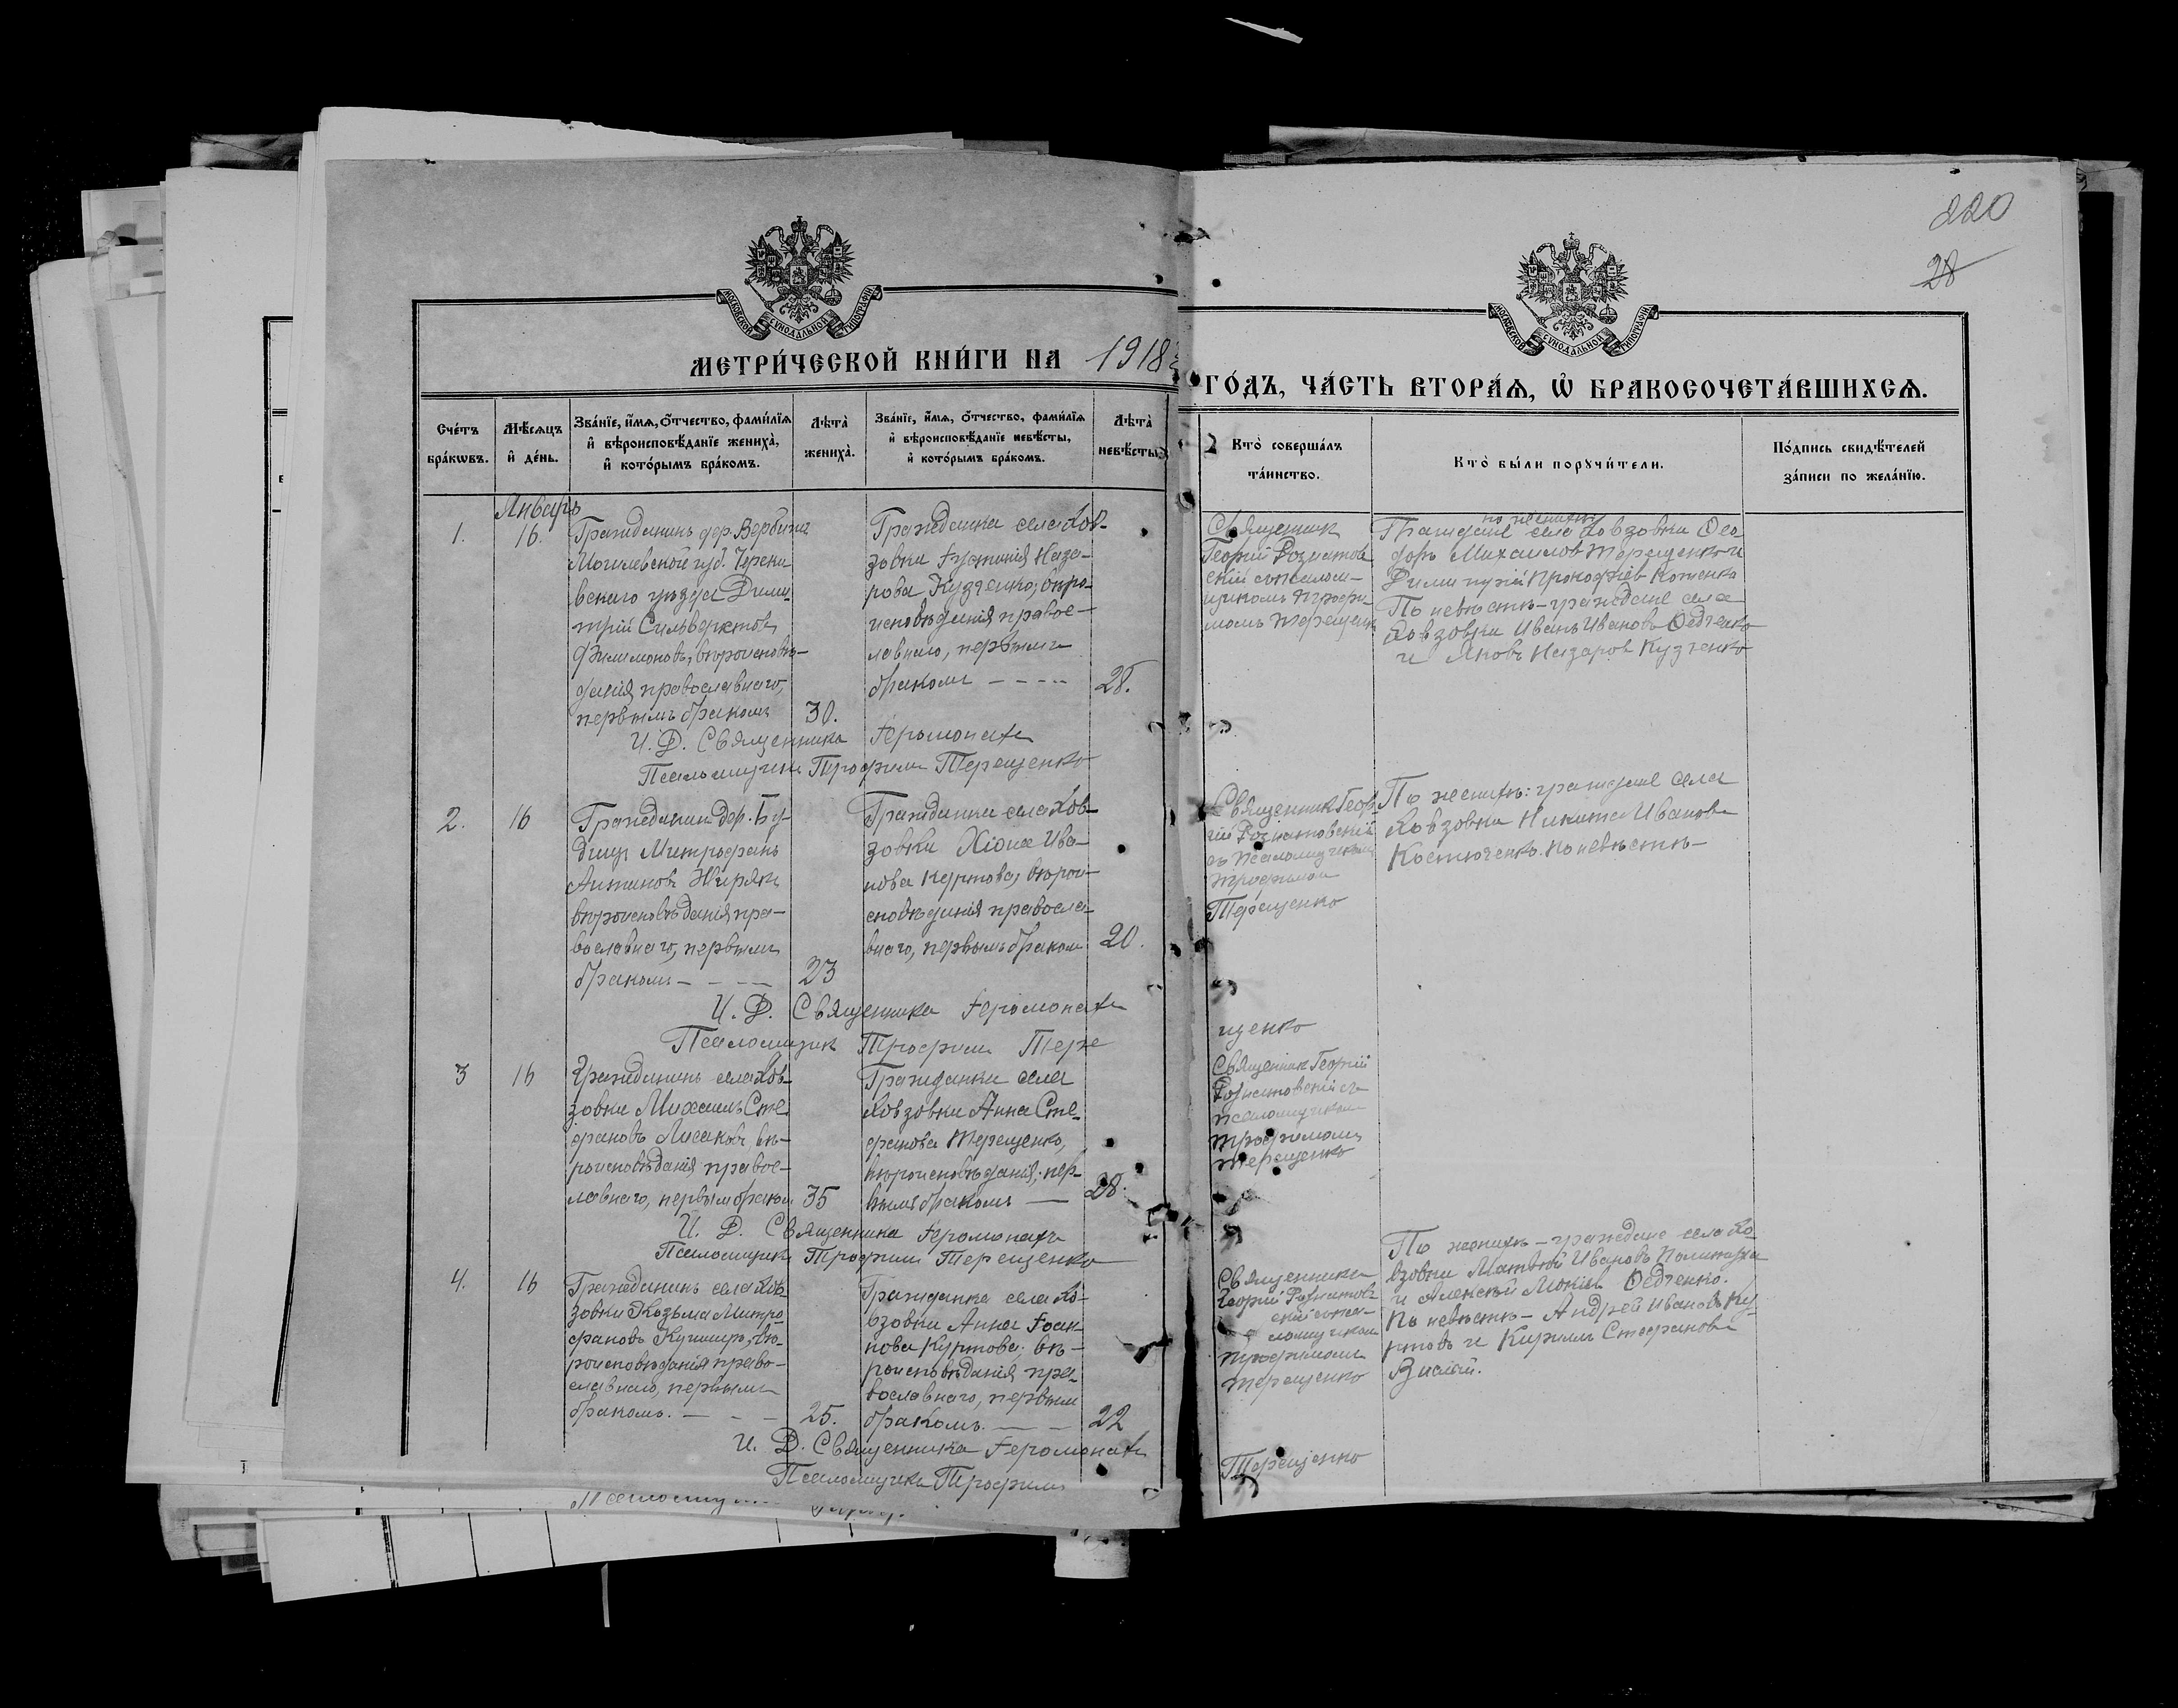 220
28
МОСКОВСКОЙ СѴНОДАЛЬНОЙ ТИПОГРАФІИ
МОСКОВСКОЙ СѴНОДАЛЬНОЙ ТИПОГРАФІИ
МЕТРИ́ЧЕСКОЙ КНИ́ГИ НА 1918
ГО́ДЪ, ЧА́СТЬ ВТОРА́Я, Ѡ҆ БРАКОСОЧЕТА́ВШИХСЯ.
Сче́тъ бра́кѡвъ.
Мѣ́сяцъ и҆ де́нь.
Зва́нїе, и҆́мя, ѻ҆́тчество, фами́лїя
и҆ вѣроисповѣ́данїе жениха̀,
и҆ кото́рымъ бра́комъ.
Лѣта̀ жениха̀.
Зва́нїе, и҆́мя, ѻ҆́тчество, фами́лїя
и҆ вѣроисповѣ́данїе невѣ́сты,
и҆ кото́рымъ бра́комъ.
Лѣта̀ невѣ́сты
Кто̀ соверша́лъ
та́инство.
Кто̀ бы́ли порꙋчи́тели.
По́дпись свидѣ́телей
за́писи по жела́нїю.
Январь
1.
16.
Гражданинъ дер.
Могилевской губ.
уѣзда Дими-
трій
Филимоновъ, вѣроисповѣ-
данія православнаго,
первымъ бракомъ
30.
Гражданка села Ков-
зовки Іустинія Наза-
рова Кузченко, вѣро-
исповѣданія правос-
лавнаго, первымъ
бракомъ - - - -
28.
Священник
Георгій
скій съ псалом-
щикомъ Трофи-
момъ Терещенк
по жениху
Граждане села Ковзовки Ѳео-
доръ Михаилов Терещенко и
Димитрій Прокофіев
По невѣстѣ - граждане села
Ковзовки Иванъ Иванов Ѳедченко
и Яковъ Назаров Кузченко
И. Д. Священника Іеромонахъ
Псаломщикъ Трофим Терещенко
2.
16
Гражданин дер. Бу-
дищ Митрофанъ
Антинов
вѣроисповѣданія пра-
вославнаго, первымъ
бракомъ - - - -
23
Гражданка села Ков-
зовки Хіонія Ива-
нова Куртова, вѣрои-
сповѣданія правосла-
внаго, первымъ браком
20.
Священник Геор-
гій
съ псаломщиком
Трофимом
Терещенко
По женихѣ: граждане села
Ковзовки Никита Иванов
Костюченко. По невѣстѣ -
И. Д. Священника Іеромонахъ
Псаломщик Трофим Тере
щенко
3
16
Гражданинъ села Ков-
зовки Михаилъ Сте-
фановъ Лисаков, вѣ-
роисповѣданія правос-
лавнаго, первым браком
35
Гражданка села
Ковзовки Анна Сте-
фанова Терещенко,
вѣроисповѣданія; пер-
вымъ бракомъ —
28.
Священник Георгій
съ
псаломщиком
Трофимомъ
Терещенко
И. Д. Священника Іеромонахъ
Псаломщикъ Трофим Терещенко
4.
16
Гражданинъ села Ков-
зовки Козьма Митро-
фановъ Кушнир, вѣ-
роисповѣданія право-
славнаго, первымъ
бракомъ. — - -
25.
Гражданка села Ко-
взовки Анна Іоан-
нова Куртова; вѣ-
роисповѣданія пра-
вославнаго, первым
бракомъ. — —
22
Священника
Георгій
скій съ пса-
ломщиком
Трофимом
Терещенко
По женихѣ - граждане села Ко-
взовки Матвѣй Ивановъ
и Алексѣй Ѳедченко.
По невѣстѣ - Андрей Ивановъ Ку-
ртовъ и Кирилл Стефанов
И. Д. Священника Іеромонахъ
Псаломщикъ Трофимъ
Терещенко